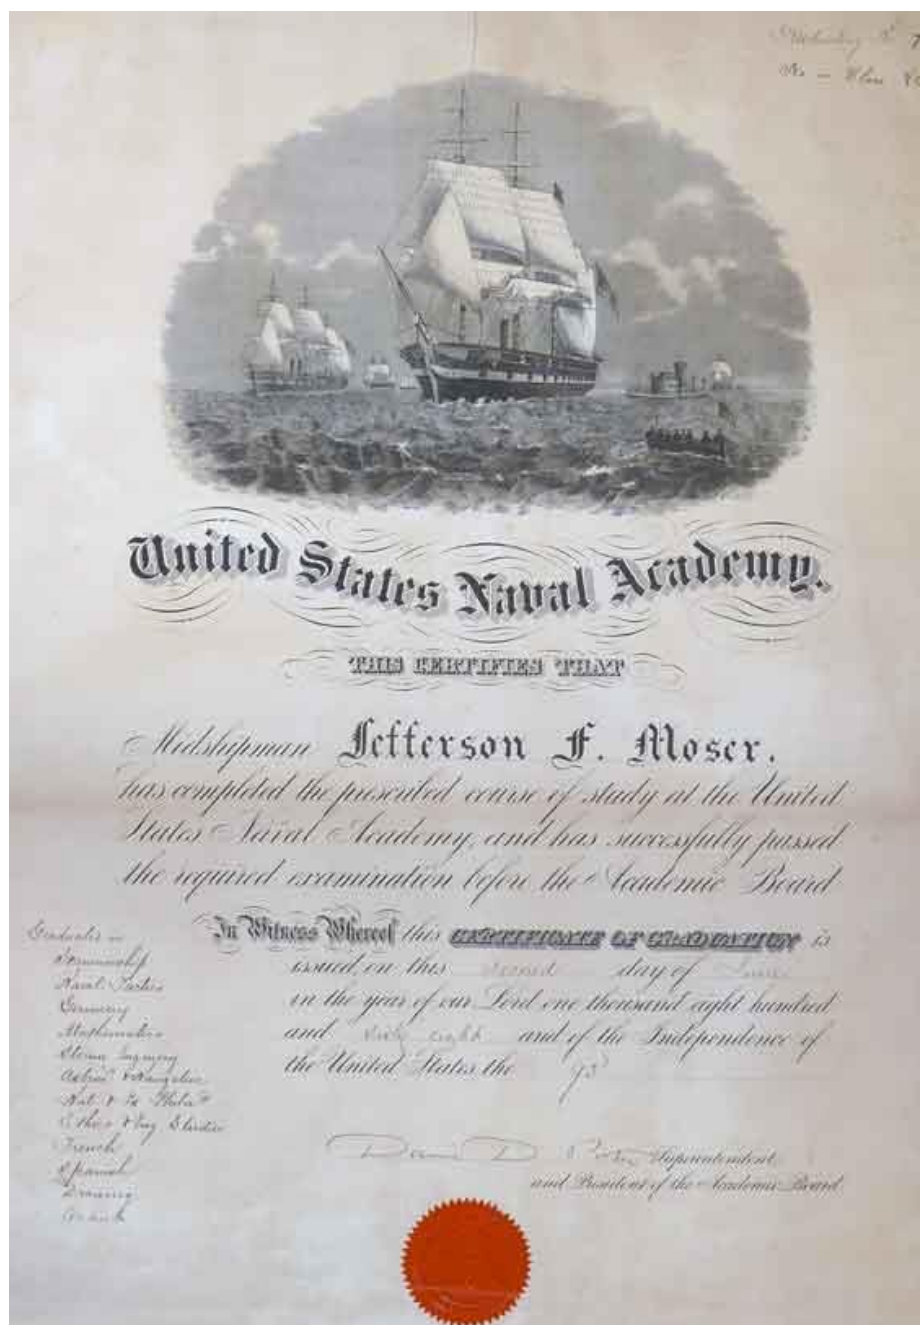 United States Naval Academy.
THIS CERTIFIES THAT
Midshipman Jefferson F. Moser.
has completed the prescribed course of study at the United
States Naval Academy, and has successfully passed
the required examination before the Academic Board
In Witness Whereof this CERTIFICATE OF GRADUATION is
issued on this second day of June
in the year of our Lord one thousand eight hundred
and sixty eight and of the Independence of
the United States the
David D. Porter Superintendent
and President of the Academic Board
Graduates in
Seamanship
Naval Tactics
Gunnery
Mathematics
Steam
French
Spanish
Drawing